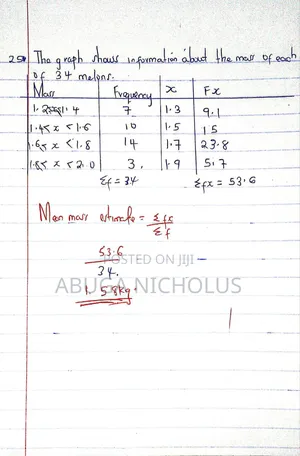 25 The graph shows information about the mass of each
of 34 melons.
Mass Frequency x Fx
1.2≤x≤1.4 7 1.3 9.1
1.4≤x<1.6 10 1.5 15
1.6≤x<1.8 14 1.7 23.8
1.8≤x<2.0 3. 1.9 5.7
Σf=34 Σfx = 53.6
Mean mass estimate = Σfx
Σf
53.6
34.
POSTED ON JIJI
ABUGA NICHOLUS
1.58kg